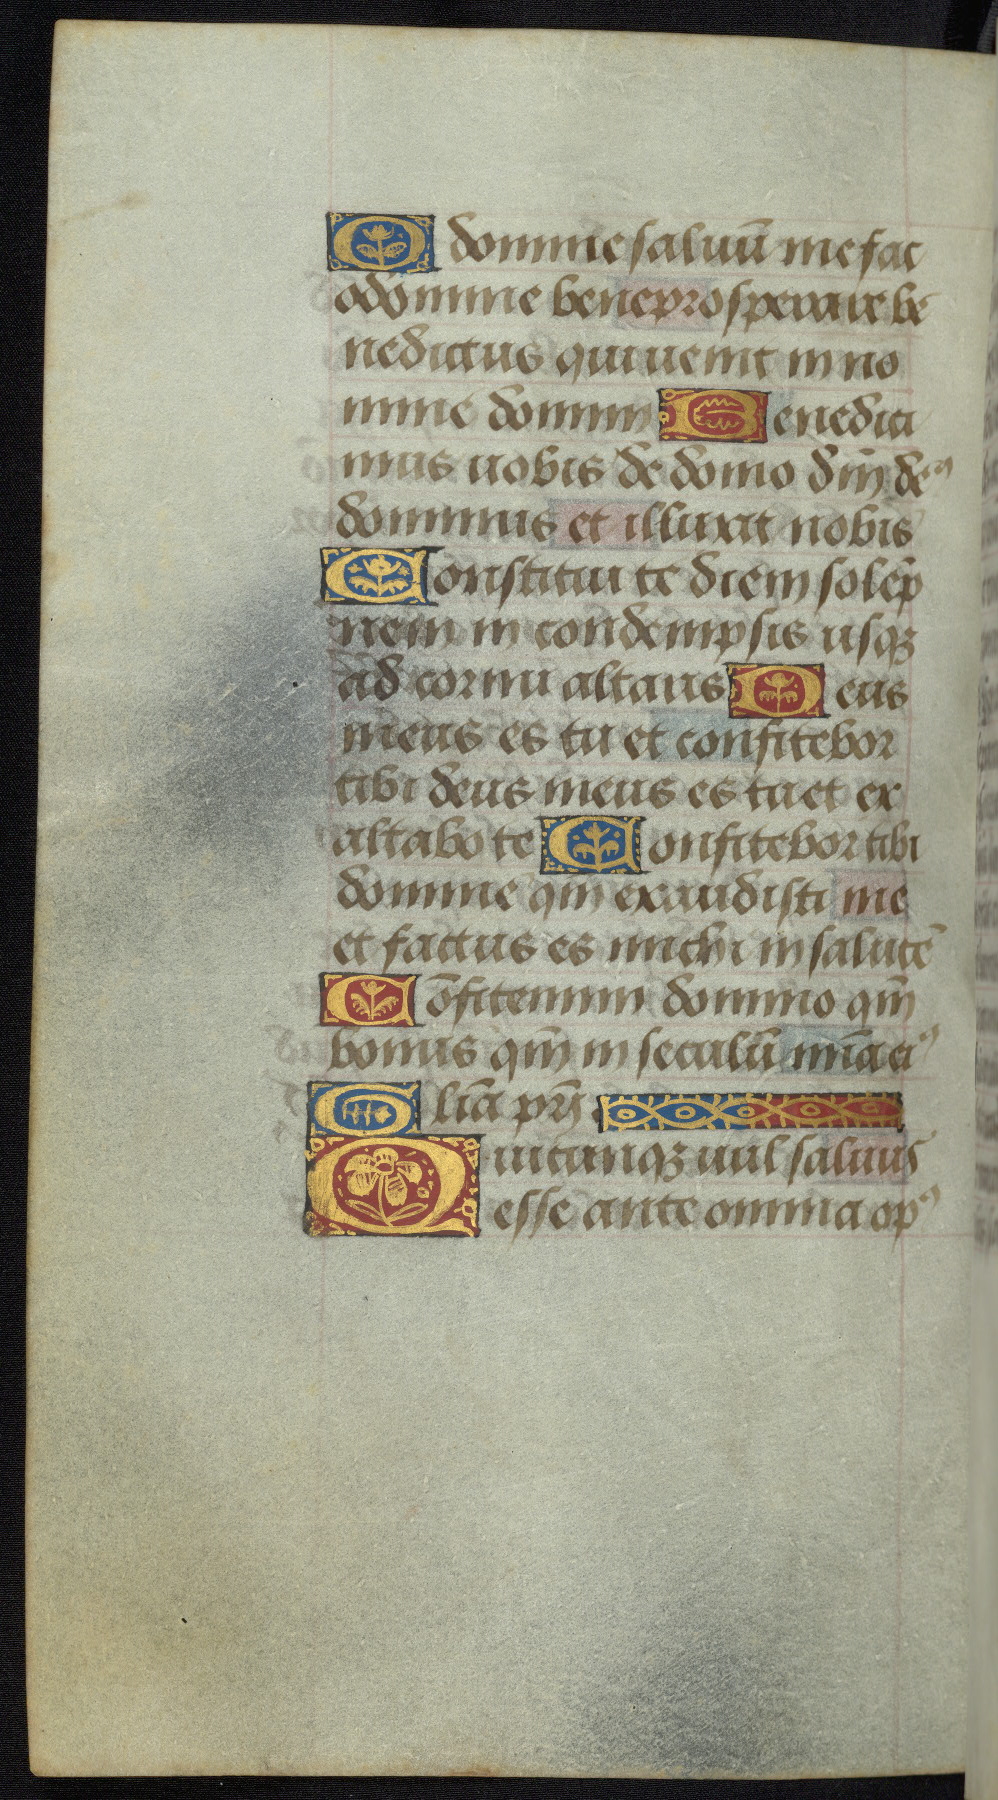 O domine saluū me fac
o domine bene prosperare be
nedictus qui uenit in no
mine domini Benedici
mus uobis de domo dm̄ de9
dominus et illuxit nobis
Constitui te diem solep̄
nem in condempsis usqꝫ
ad cornu altaris Deus
meus es tu et confitebor
tibi deus meus es tu et ex
altabo te Confitebor tibi
domine qm̄ exaudisti me
et factus es michi in salutē
Cōfitemini domino qm̄
bonus qm̄ in seculū mīa ei9
Glīa prī
Quicunqꝫ uul saluus
esse ante omnia op9